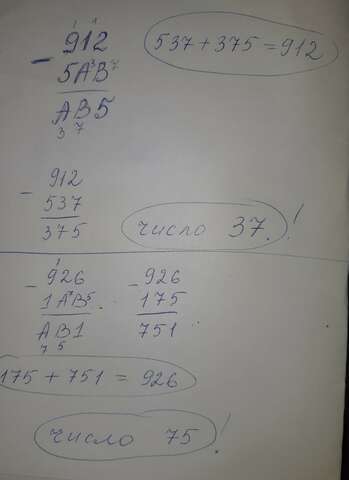 1 1
- 912
5A³B⁷
AB5
3 7
537+375=912
- 912
537
375
число 37.!
1
- 926
1A⁷B⁵
AB1
7 5
- 926
175
751
175 + 751 = 926
число 75!